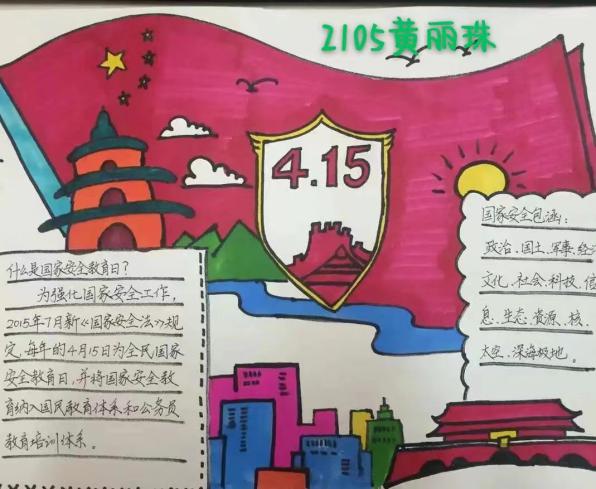 2105黄丽珠
4.15
什么是国家安全教育日？
为强化国家安全工作，
2015年7月新《国家安全法》规
定，每年的4月15日为全民国家
安全教育日，并将国家安全教
育纳入国民教育体系和公务员
教育培训体系。
国家安全包涵：
政治、国土、军事、经济
文化、社会、科技、信
息、生态、资源、核、
太空、深海极地。